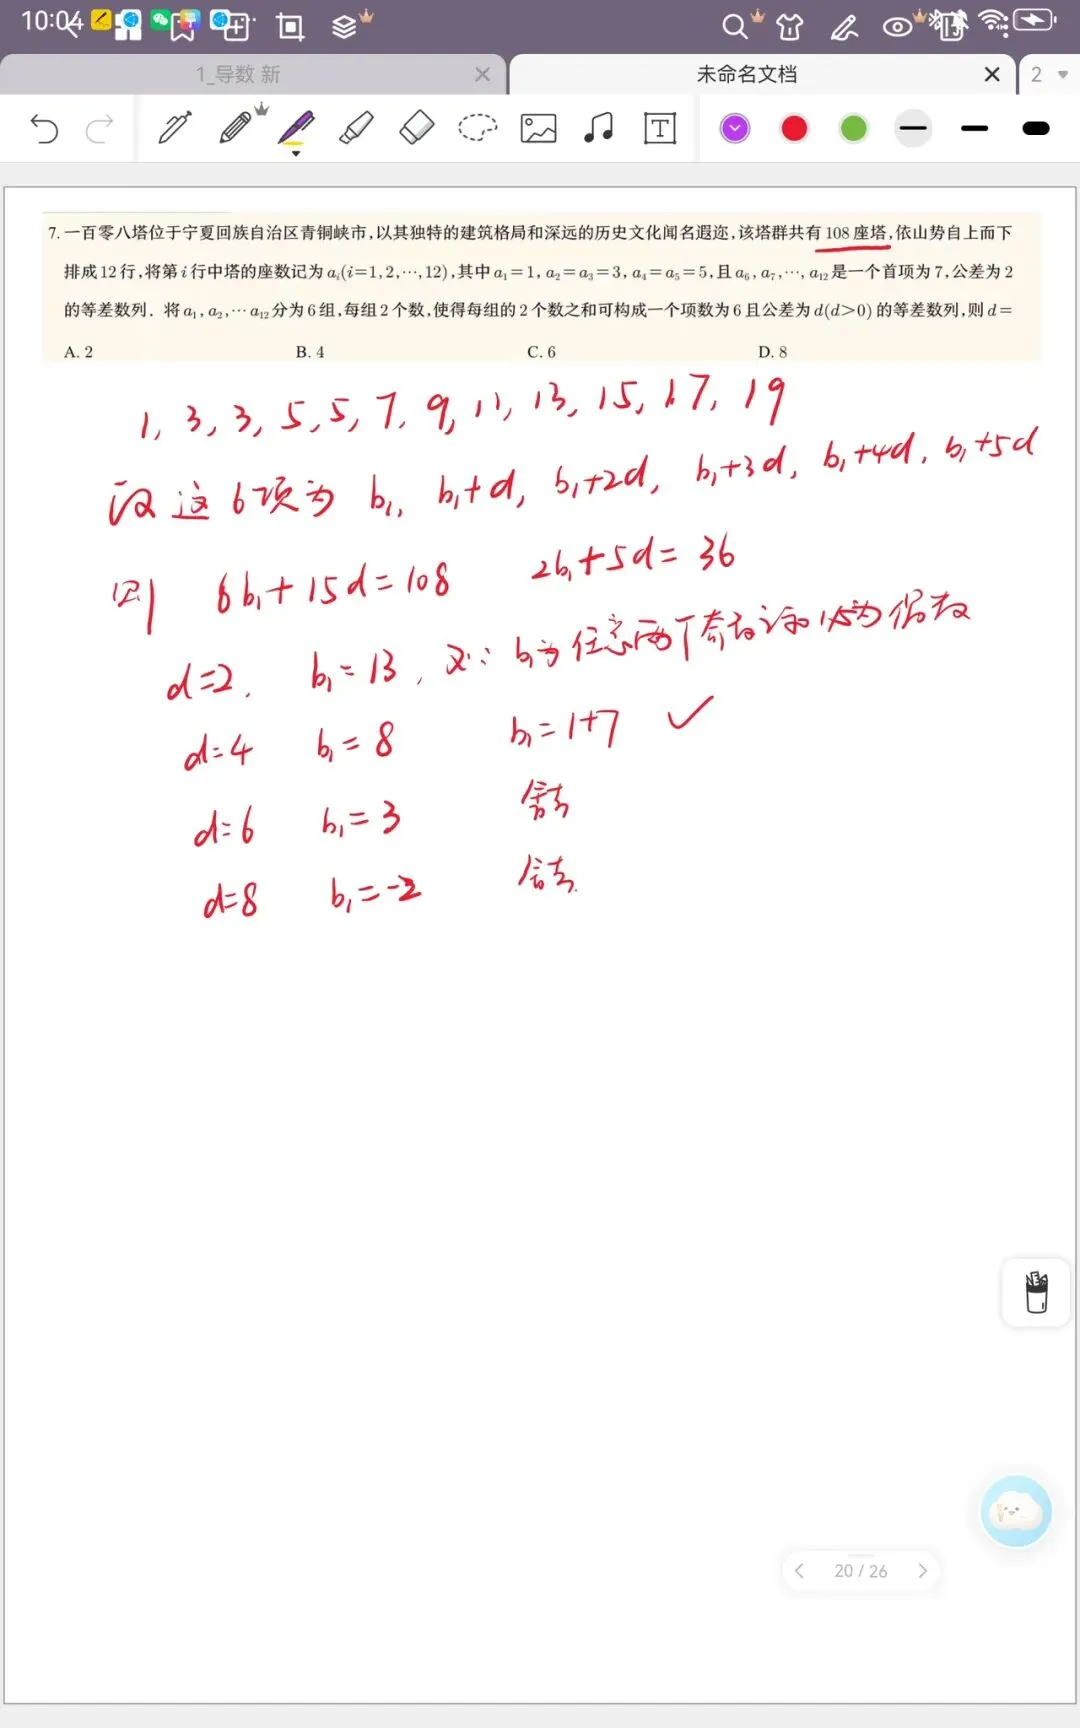 10:04
1_导数 新
未命名文档
2
7. 一百零八塔位于宁夏回族自治区青铜峡市,以其独特的建筑格局和深远的历史文化闻名遐迩,该塔群共有 108 座塔,依山势自上而下
排成 12 行,将第 i 行中塔的座数记为 aᵢ(i=1,2,⋯,12),其中 a₁=1, a₂=a₃=3, a₄=a₅=5,且 a₆, a₇,⋯, a₁₂ 是一个首项为 7,公差为 2
的等差数列. 将 a₁, a₂,⋯ a₁₂ 分为 6 组,每组 2 个数,使得每组的 2 个数之和可构成一个项数为 6 且公差为 d(d>0) 的等差数列,则 d=
A. 2 B. 4 C. 6 D. 8
1, 3, 3, 5, 5, 7, 9, 11, 13, 15, 17, 19
设这6项为 b₁, b₁+d, b₁+2d, b₁+3d, b₁+4d, b₁+5d
则 6b₁+15d=108 2b₁+5d=36
d=2, b₁=13, 又∵ b₁为任意两个奇数之和 必为偶数
d=4 b₁=8 b₁=1+7 ✓
d=6 b₁=3 舍去
d=8 b₁=-2 舍去.
20 / 26